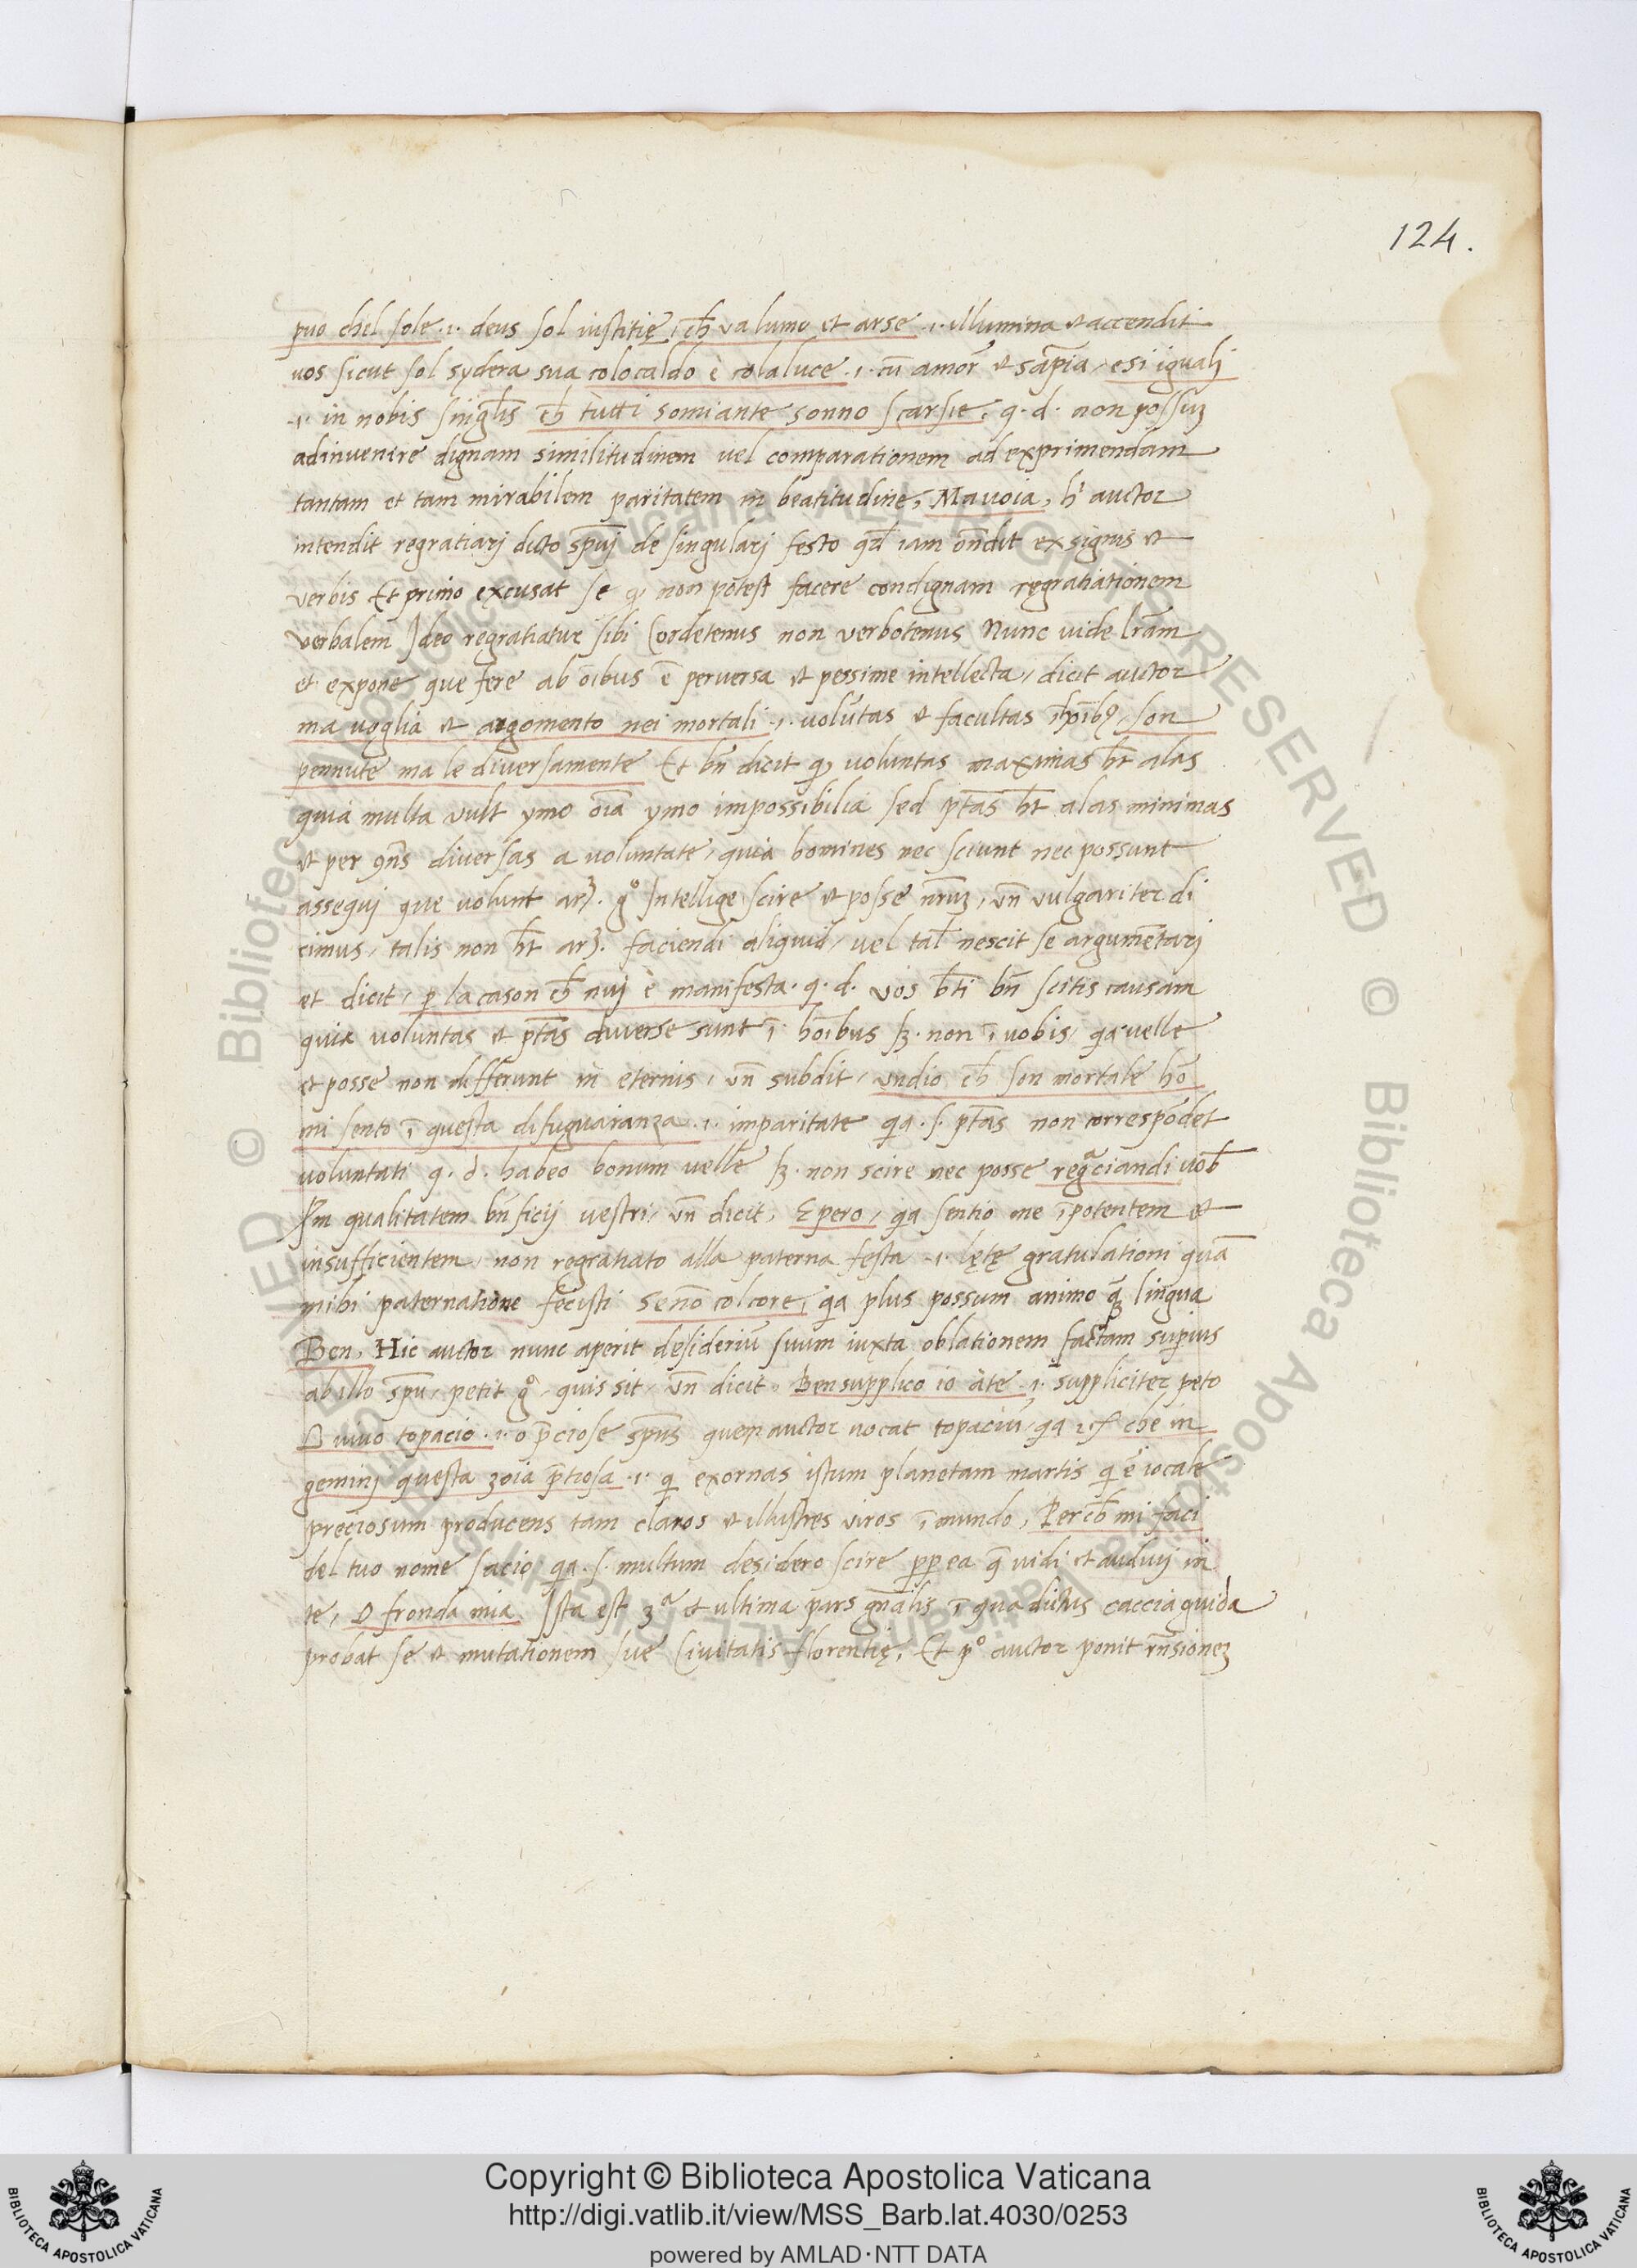 124.
puo chel sole .i. deus sol iustitię, ch̄ va lumo et arse .i. illumina et accendit
uos sicut sol sydera sua colocaldo è colaluce .i. cū amor̄ et sap̄ia, esi iguali
.i. in nobis singl̄is ch̄ tutti somiante sonno scarsie, q. d. non possuꝫ
adinvenire dignam similitudinem vel comparationem ad exprimendam
tantam et tam mirabilem paritatem in beatitudine, Mauoia, hͥ auctor
intendit regratiarj dicto sp̄uj de singularj festo qđ iam on̄dit ex signis et
verbis Et primo excusat se ꝙ non potest facere condignam regratiationem
verbalem Ideo regratiatur sibi Cordetenus non verbotenus Nunc vide lr̄am
et expone que fere ab oībus ē perversa et pessime intellecta, dicit auctor
ma voglia et argomento nei mortali .i. volūtas et facultas
pennute ma le diversamente Et bn̄ dicit ꝙ voluntas maximas ht̄ alas
quia multa vult ymo oīa ymo impossibilia sed pt̄as ht̄ alas minimas
et per ꝯn̄s diversas a voluntate, quia homines nec sciunt nec possunt
assequj que volunt arꝫ. gͦ Intellige scire et posse nr̄uꝫ, un̄ vulgariter di
cimus, talis non ht̄ arꝫ. faciendi aliquid, vel tal̄ nescit se argumētarj
et dicit, p la cason ch̄ nuj è manifesta. q. d. vos bt̄i bn̄ scitis causam
quia voluntas et pt̄as diverse sunt ī hoībus sꝫ. non ī vobis, qa velle
et posse non differunt in eternis, un̄ subdit, undio ch̄ son mortale hō
mi sento ī questa disuguaianza .i. imparitate qa .s. pt̄as non correspōdet
voluntati q. d. habeo bonum velle sꝫ. non scire nec posse regᵃciandi vob̄
Fm qualitatem bn̄ficij vestri, un̄ dicit, Epero, qa sentio me īpotentem et
insufficientem, non regratiato alla paterna festa .i. lętę gratulationi quā
mihi paternatione fecisti senō colcore, qa plus possum animo qꝫ lingua
Ben, Hic auctor nunc aperit desideriū suum iuxta oblationem factam supius
ab illo sp̄u, petit gͦ, quis sit, un̄ dicit, Ben supplico io àte .i. suppliciter peto
O vivo topacio .i. o p̄ciose sp̄us quem auctor vocat topaciū, qa che in
geminj questa zoia p̄tiosa .i. q exornas istum planetam martis q ē iocale
preciosum producens tam claros et illustres viros ī mundo, Perch̄ mi faci
del tuo nome sacio, qa .s. multum desidero scire pp ea q̄ vidi et audivj in
te, O fronda mia, Ista est 3ª et ultima pars gn̄alis ī qua dictus cacciaguida
probat se et mutationem sue Civitatis florentię, Et pͦ auctor ponit rn̄sioneꝫ
© Biblioteca Apostolica Vaticana ALL RIGHTS RESERVED
Copyright © Biblioteca Apostolica Vaticana
http://digi.vatlib.it/view/MSS_Barb.lat.4030/0253
powered by AMLAD·NTT DATA
BIBLIOTECA APOSTOLICA VATICANA
BIBLIOTECA APOSTOLICA VATICANA